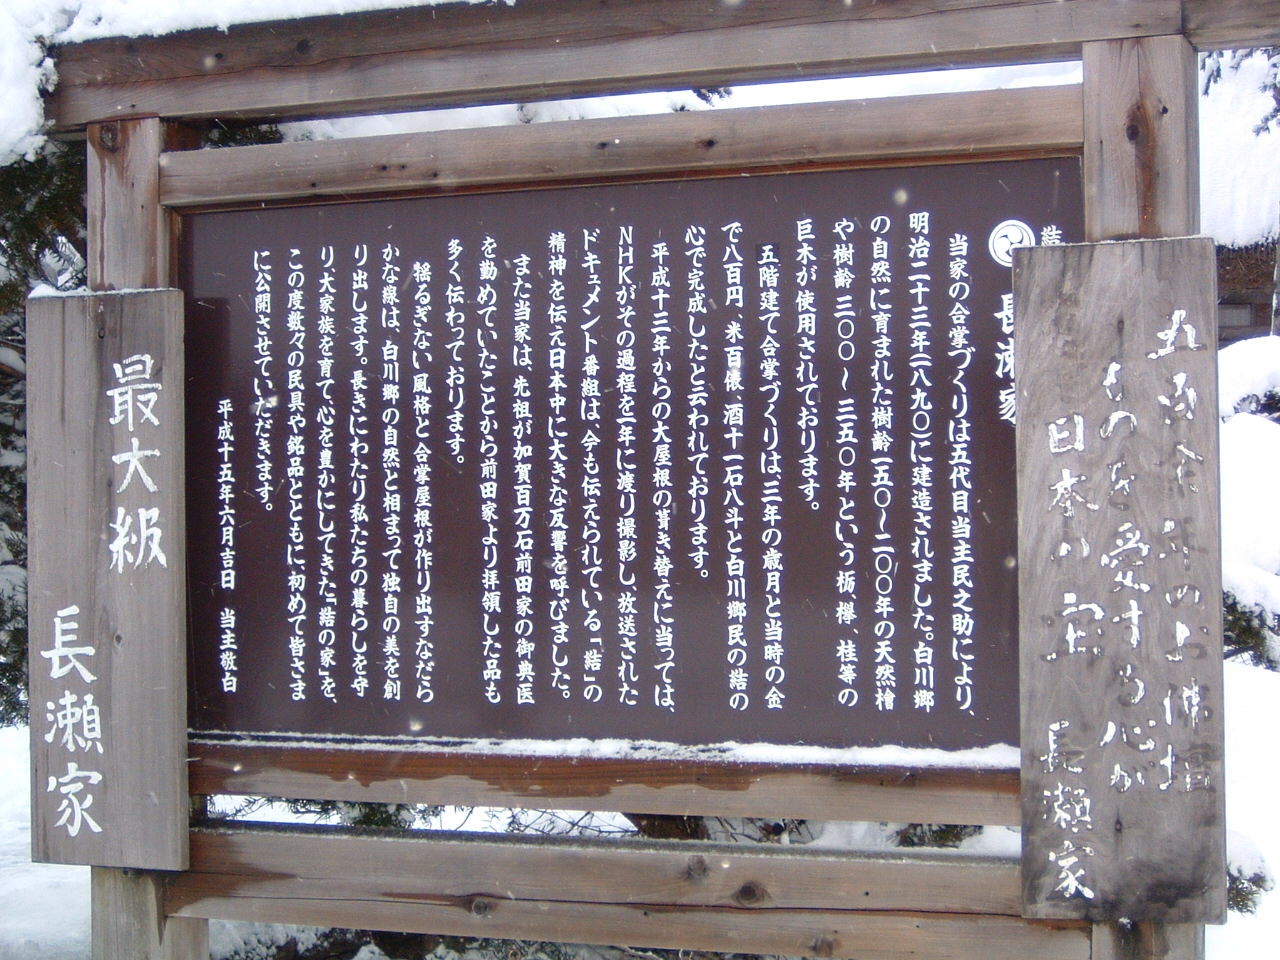 長瀬家
当家の合掌づくりは五代目当主民之助により、
明治二十三年(一八九〇)に建造されました。白川郷
の自然に育まれた樹齢一五〇〜二〇〇年の天然檜
や樹齢三〇〇〜三五〇年という栃、欅、桂等の
巨木が使用されております。
五階建て合掌づくりは三年の歳月と当時の金
で八百円、米百俵、酒十一石八斗と白川郷民の結の
心で完成したと云われております。
平成十三年からの大屋根の葺き替えに当っては、
NHKがその過程を一年に渡り撮影し、放送された
ドキュメント番組は、今も伝えられている「結」の
精神を伝え日本中に大きな反響を呼びました。
また当家は、先祖が加賀百万石前田家の御典医
を勤めていたことから前田家より拝領した品も
多く伝わっております。
揺るぎない風格と合掌屋根が作り出すなだら
かな線は、白川郷の自然と相まって独自の美を創
り出します。長きにわたり私たちの暮らしを守
り大家族を育て、心を豊かにしてきた「結の家」を、
この度数々の民具や銘品とともに初めて皆さま
に公開させていただきます。
平成十五年六月吉日 当主敬白
年のお佛壇
ものを愛する心が
日本の 長瀬家
最大級
長瀬家